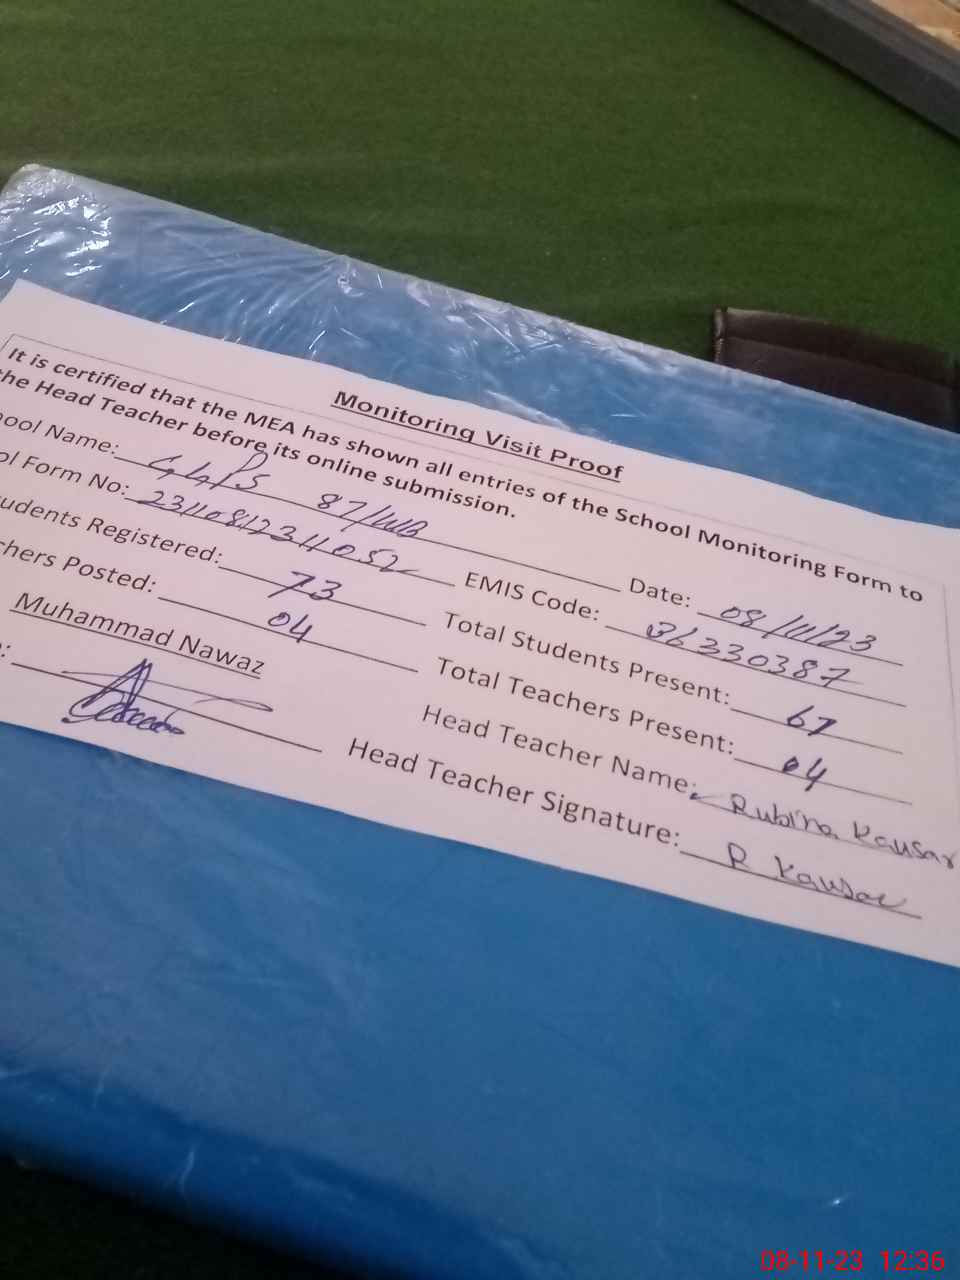 Monitoring Visit Proof
It is certified that the MEA has shown all entries of the School Monitoring Form to
the Head Teacher before its online submission.
ool Name: GGPS 87/WB Date: 08/11/23
ol Form No: EMIS Code: 36330387
udents Registered: 73 Total Students Present: 67
chers Posted: 04 Total Teachers Present: 04
Muhammad Nawaz Head Teacher Name: Rubina Kausar
: Head Teacher Signature: R Kausar
08-11-23 12:36